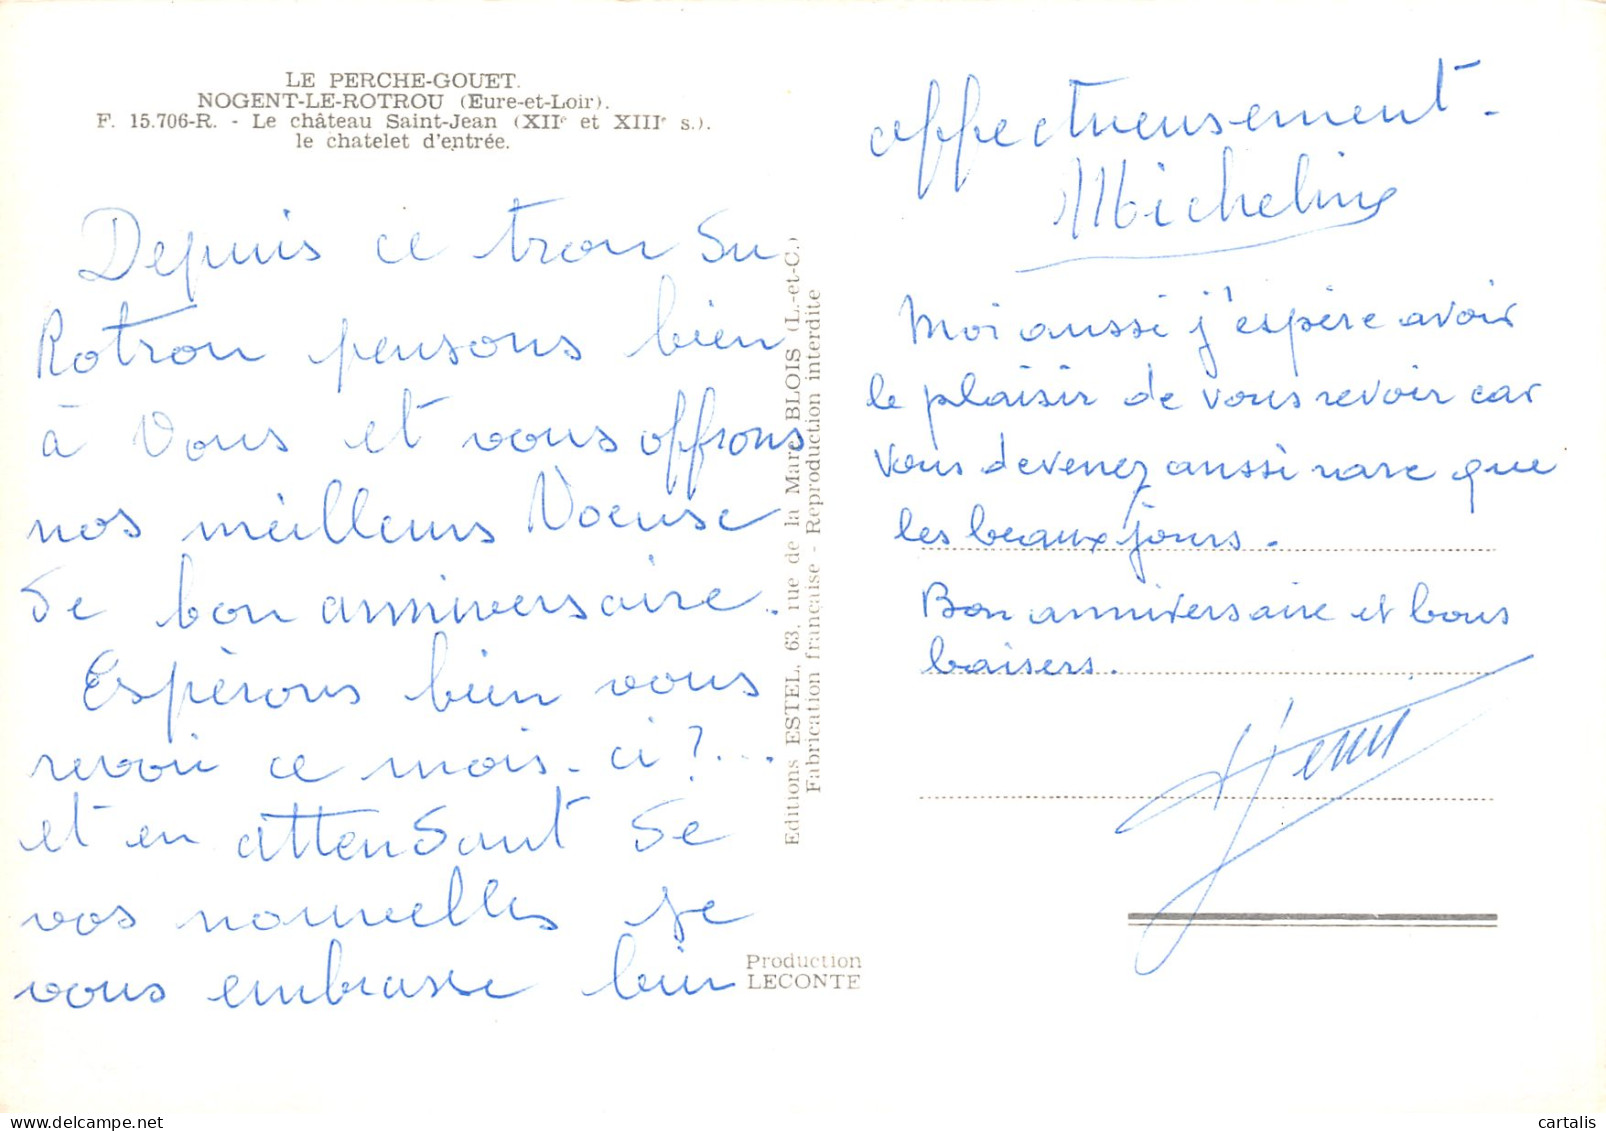 LE PERCHE-GOUET.
NOGENT-LE-ROTROU (Eure-et-Loir).
F. 15.706-R. - Le château Saint-Jean (XIIe et XIIIe s.).
le chatelet d'entrée.
Depuis ce trou du
Rotrou pensons bien
à Vous et vous offrons
nos meilleurs Voeuse
de bon anniversaire.
Espérons bien vous
revoir ce mois-ci ?...
et en attendant de
vos nouvelles je
vous embrasse bien
affectueusement.
Micheline
Moi aussi j'espère avoir
le plaisir de vous revoir car
vous devenez aussi rare que
les beaux jours.
Bon anniversaire et bons
baisers.
Editions ESTEL, 63, rue de la Mare BLOIS (L.-et-C.)
Fabrication française - Reproduction interdite
Production
LECONTE
cartalis